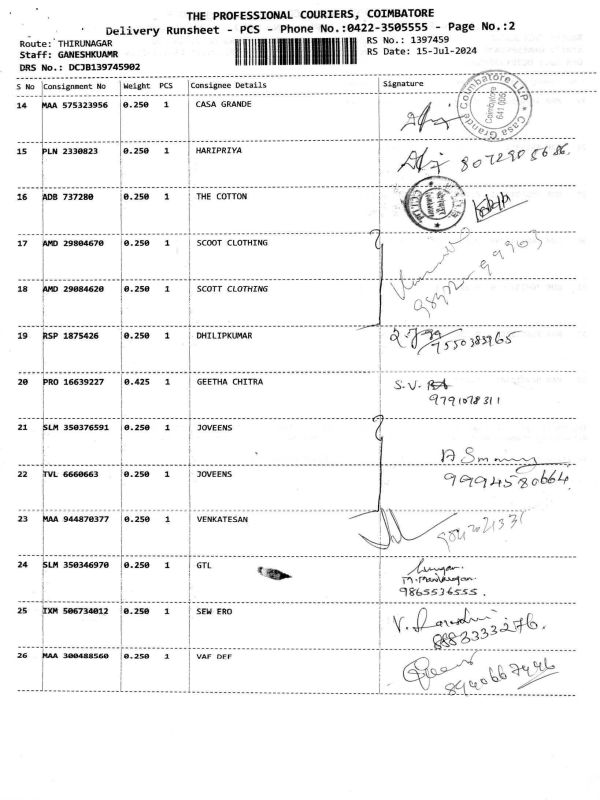 THE PROFESSIONAL COURIERS, COIMBATORE
Delivery Runsheet - PCS - Phone No.:0422-3505555 - Page No.:2
Route: THIRUNAGAR RS No.: 1397459
Staff: GANESHKUAMR RS Date: 15-Jul-2024
DRS No.: DCJB139745902
S No Consignment No Weight PCS Consignee Details Signature
14 MAA 575323956 0.250 1 CASA GRANDE
Casa Grande Coimbatore LLP * Coimbatore 641 006
15 PLN 2330823 0.250 1 HARIPRIYA 8072905686
16 ADB 737280 0.250 1 THE COTTON
17 AMD 29804670 0.250 1 SCOOT CLOTHING
18 AMD 29084620 0.250 1 SCOTT CLOTHING
19 RSP 1875426 0.250 1 DHILIPKUMAR
7550383965
20 PRO 16639227 0.425 1 GEETHA CHITRA S.V.
9791078311
21 SLM 350376591 0.250 1 JOVEENS
22 TVL 6660663 0.250 1 JOVEENS
9994580664
23 MAA 944870377 0.250 1 VENKATESAN
24 SLM 350346970 0.250 1 GTL
9865536555.
25 IXM 506734012 0.250 1 SEW ERO
8883333276.
26 MAA 300488560 0.250 1 VAF DEF
8940667446